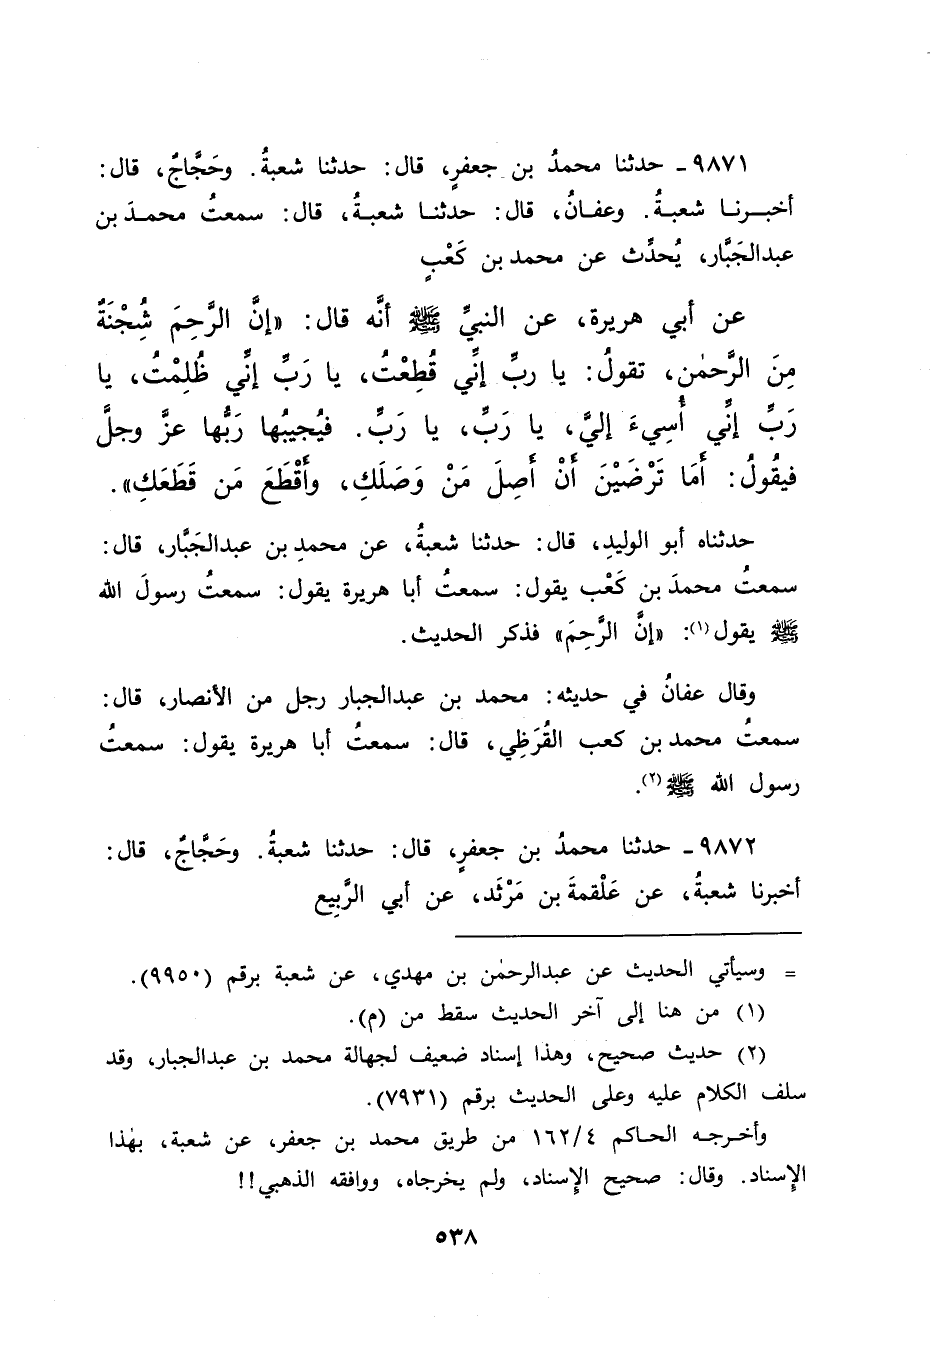 ٩٨٧١ـ حدثنا محمدُ بن جعفرٍ، قال: حدثنا شعبةُ. وحَجَّاجٌ، قال:
أخبرنا شعبةُ. وعفانُ، قال: حدثنا شعبةُ، قال: سمعتُ محمدَ بن
عبدالجَبَّار، يُحدِّث عن محمد بن كَعْبٍ
عن أبي هريرة، عن النبيِّ ﷺ أنَّه قال: «إنَّ الرَّحِمَ شُجْنَةٌ
مِنَ الرَّحمٰنِ، تقولُ: يا ربِّ إنِّي قُطِعْتُ، يا رَبِّ إنِّي ظُلِمْتُ، يا
رَبِّ إنِّي أُسِيءَ إليَّ، يا رَبِّ، يا رَبِّ. فيُجيبُها رَبُّها عزَّ وجلَّ
فيقُولُ: أَمَا تَرْضَيْنَ أَنْ أَصِلَ مَنْ وَصَلَكِ، وأَقْطَعَ مَن قَطَعَكِ».
حدثناه أبو الوليدِ، قال: حدثنا شعبةُ، عن محمدِ بن عبدالجَبَّار، قال:
سمعتُ محمدَ بن كَعْب يقول: سمعتُ أبا هريرة يقول: سمعتُ رسولَ الله
ﷺ يقول(١): «إنَّ الرَّحِمَ» فذكر الحديث.
وقال عفانُ في حديثه: محمد بن عبدالجبار رجل من الأنصار، قال:
سمعتُ محمد بن كعب القُرَظِي، قال: سمعتُ أبا هريرة يقول: سمعتُ
رسول الله ﷺ(٢).
٩٨٧٢ـ حدثنا محمدُ بن جعفرٍ، قال: حدثنا شعبةُ. وحَجَّاجٌ، قال:
أخبرنا شعبةُ، عن عَلْقمةَ بن مَرْثَد، عن أبي الرَّبِيع
= وسيأتي الحديث عن عبدالرحمٰن بن مهدي، عن شعبة برقم (٩٩٥٠).
(١) من هنا إلى آخر الحديث سقط من (م).
(٢) حديث صحيح، وهذا إسناد ضعيف لجهالة محمد بن عبدالجبار، وقد
سلف الكلام عليه وعلى الحديث برقم (٧٩٣١).
وأخرجه الحاكم ١٦٢/٤ من طريق محمد بن جعفر، عن شعبة، بهٰذا
الإسناد. وقال: صحيح الإسناد، ولم يخرجاه، ووافقه الذهبي!!
٥٣٨